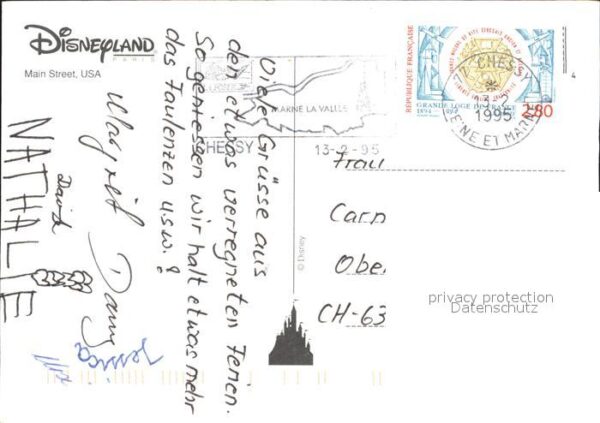 DISNEYLAND
PARIS
Main Street, USA
Viele Grüsse aus
den etwas verregneten Ferien.
So geniessen wir halt etwas mehr
das Faulenzen u.s.w.!
Margrit Dany
David
NATHALIE
Jessica
MARNE LA VALLEE
CHESSY
13-2-95
REPUBLIQUE FRANÇAISE
GRANDE LOGE DE FRANCE
1894
2,80
CHESSY
1995
SEINE ET MARNE
4
© Disney
Frau
Carn
Ober
CH-63
privacy protection
Datenschutz